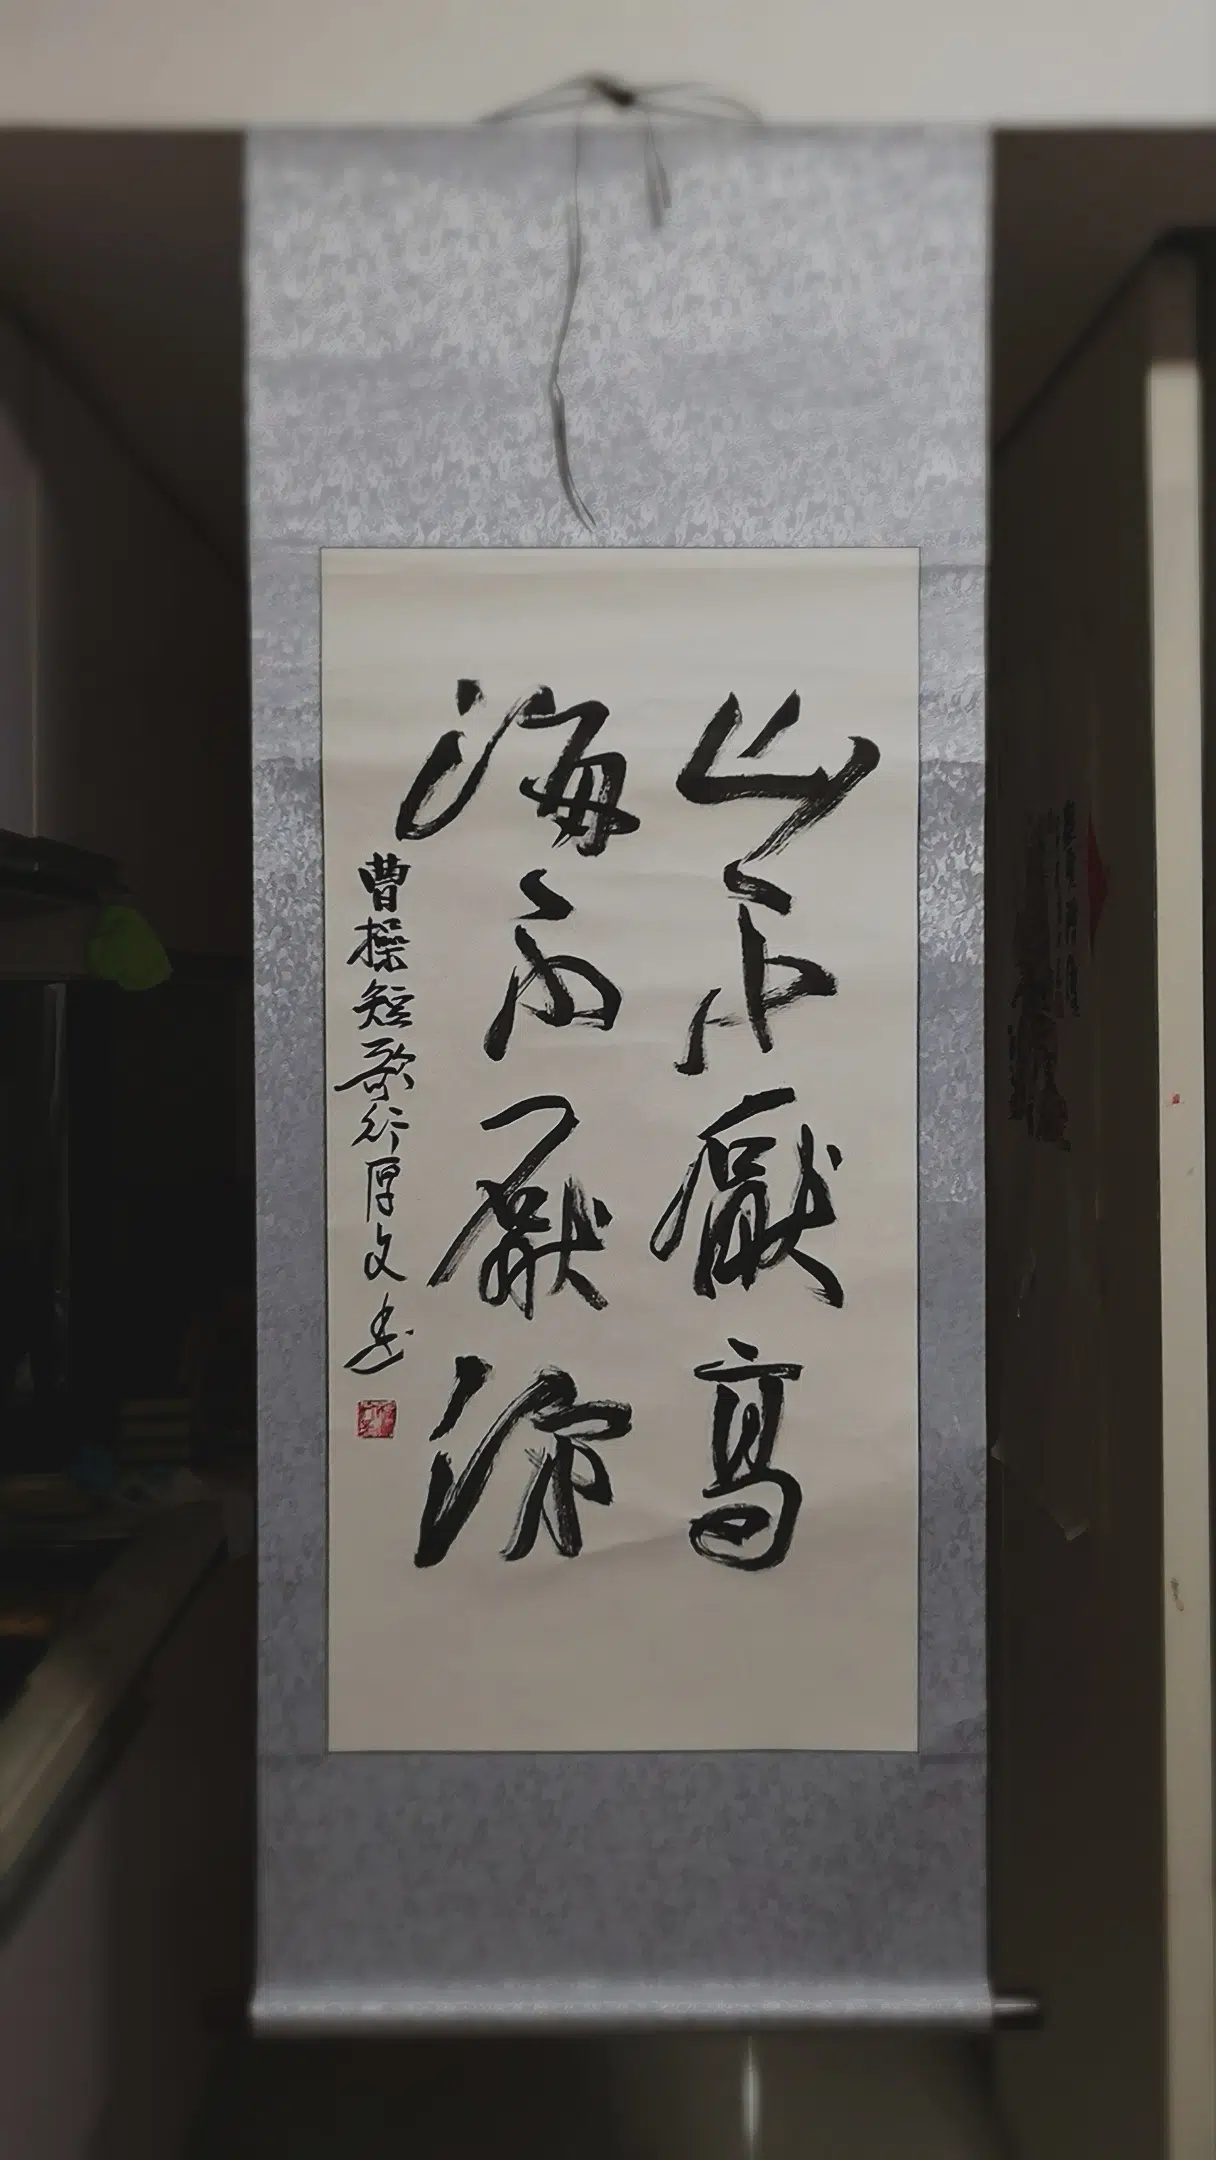 山不厭高
海不厭深
曹操短歌行厚文书